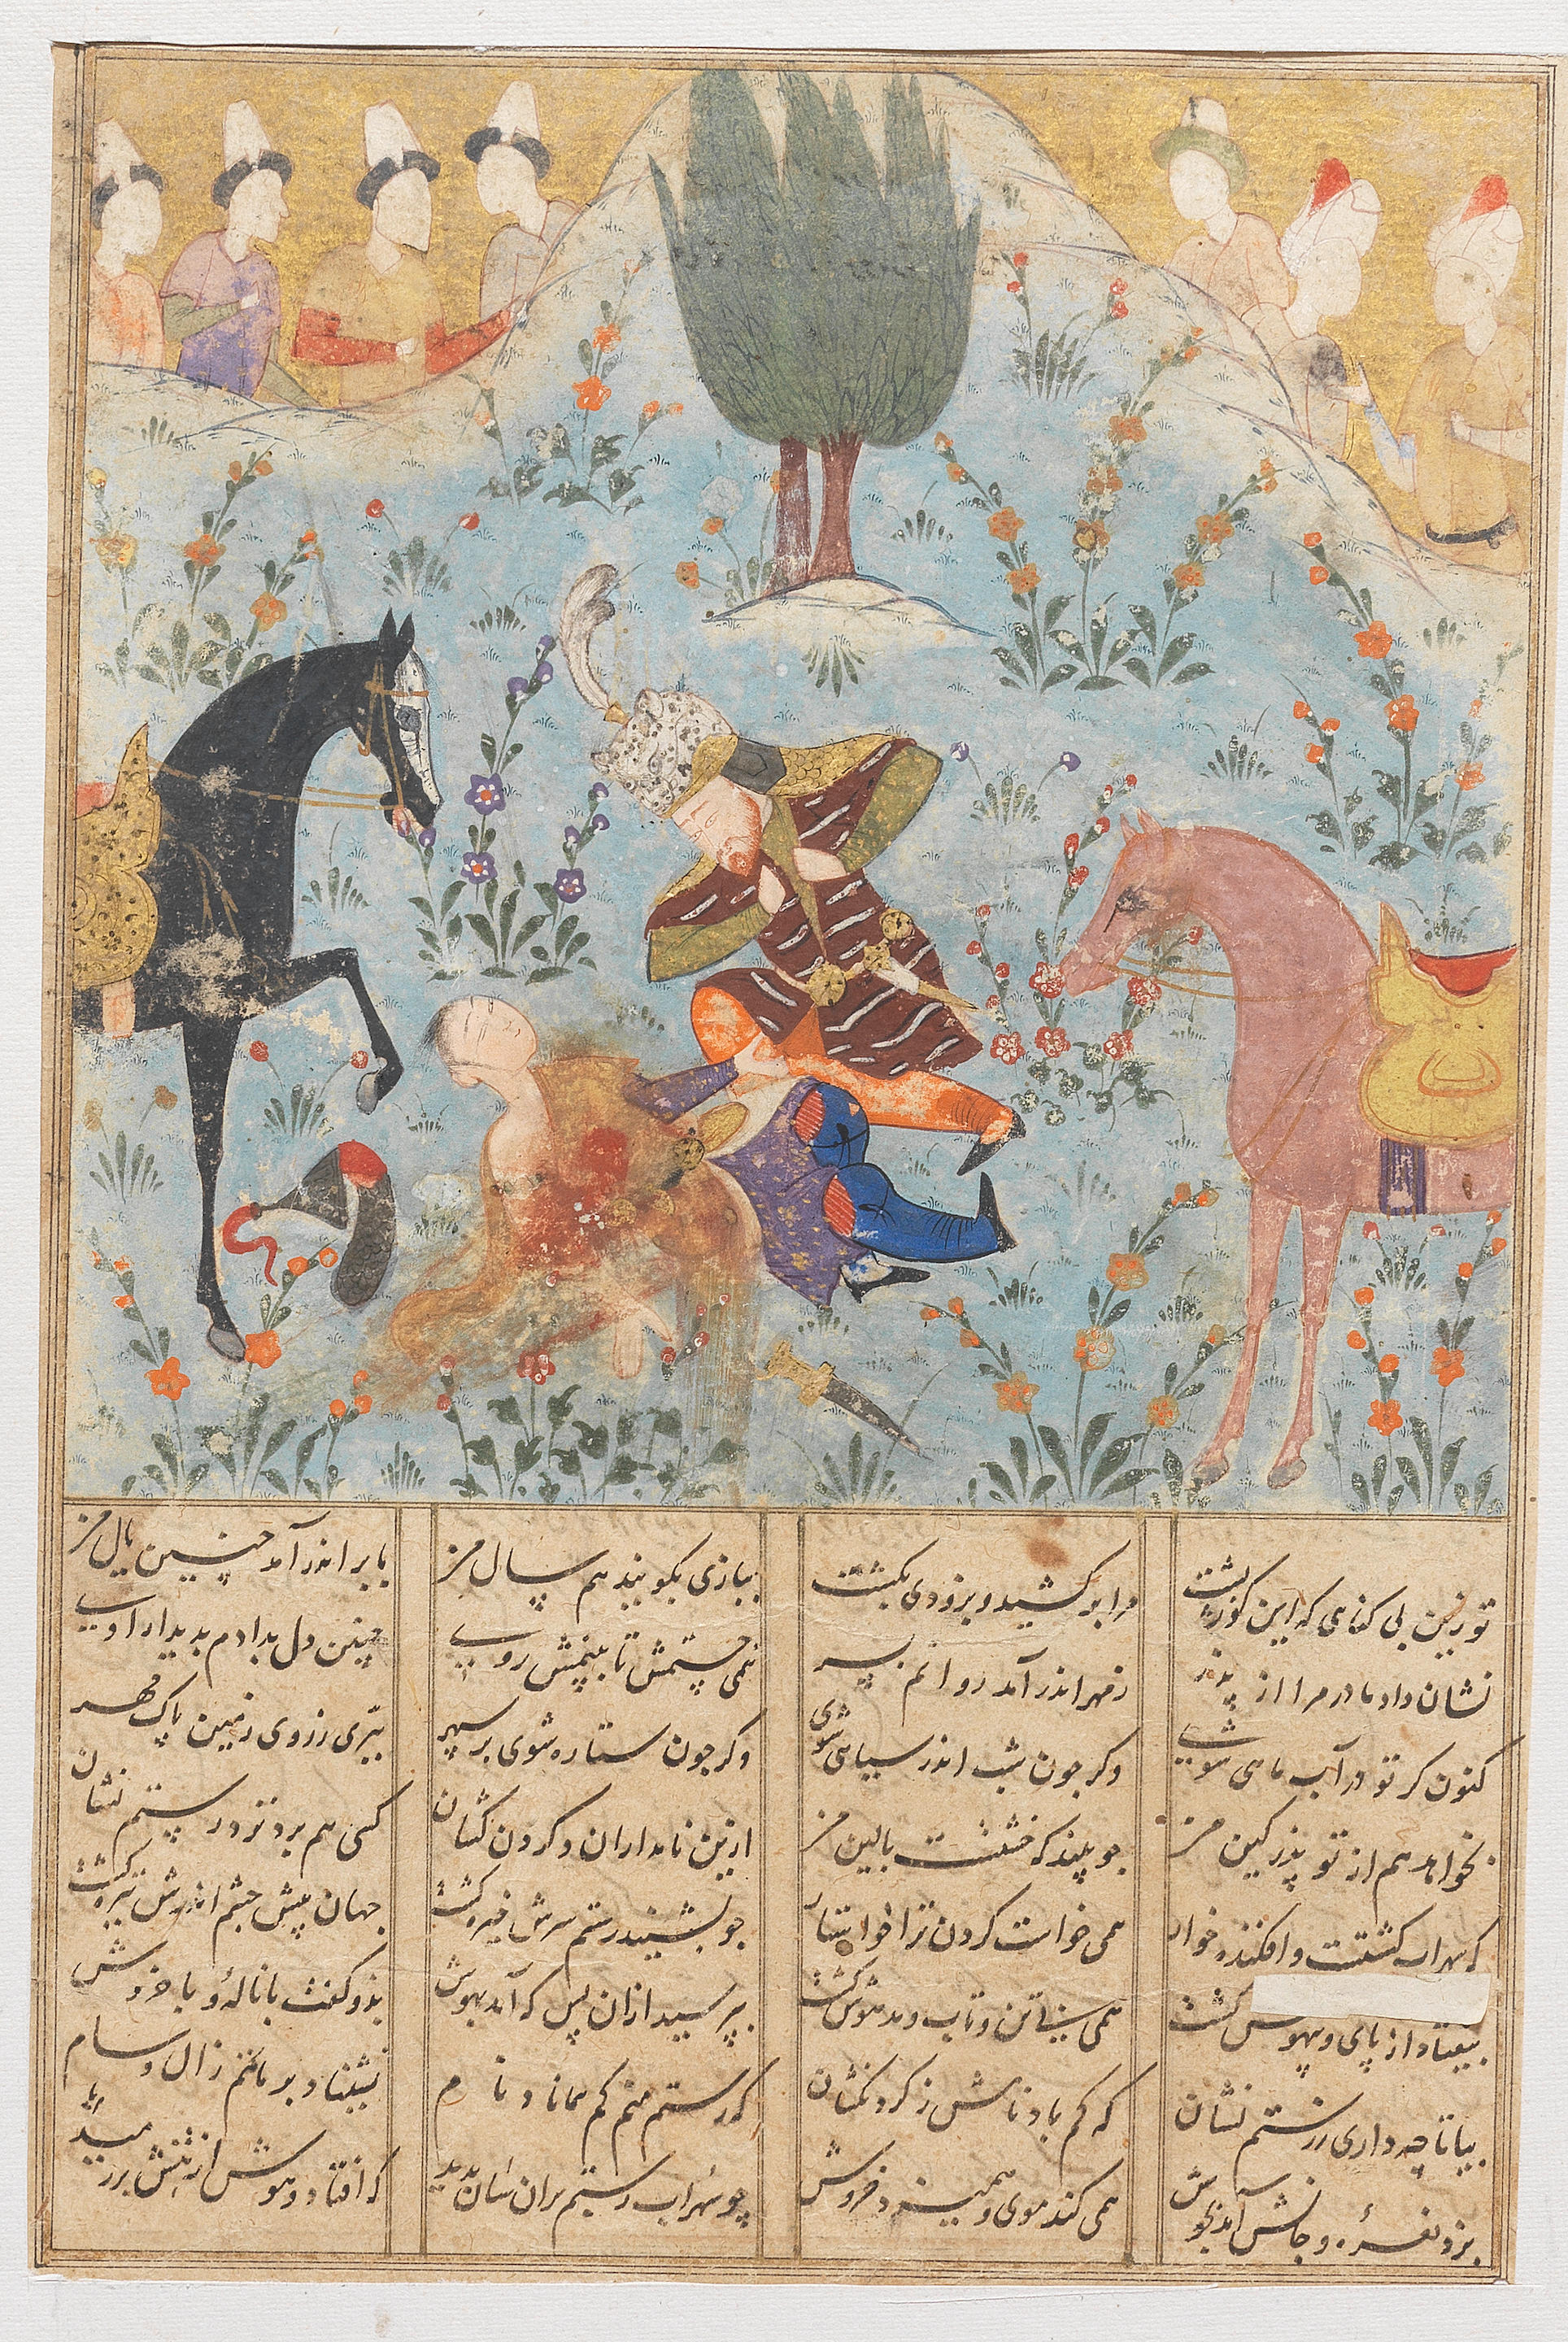 تو زین بی کناهی که این کوژ پشت مرا برکشید و بزودی بکشت ببازی بکویند هم سال من بابر اندر آمد چنین یال من
نشان داد مادر مرا از پدر زمهر اندر آمد روانم بسر همی جستمش تا ببینمش روی چنین دل بدادم بدیدار اوی
کنون کر تو در آب ماهی شوی وکر چون شب اندر سیاهی شوی وکر چون ستاره شوی بر سپهر ببری ز روی زمین پاک مهر
بخواهد هم از تو پدر کین من چو بیند که خشتست بالین من ازین نامداران و کردن کشان کسی هم برد نزد رستم نشان
که سهراب کشتست و افکنده خوار همی خواست کردن ترا خواستار چو بشنید رستم سرش خیره کشت جهان پیش چشم اندرش تیره کشت
بیفتاد از پای و بیهوش کشت همی بی تن و تاب و مدهوش کشت بپرسید ازان پس که آمد بهوش بدو کفت با ناله و با خروش
بیا تا چه داری ز رستم نشان که کم باد نامش ز کردنکشان که رستم منم کم مماناد نام نشیناد بر ماتمم زال و سام
بزد نعره و جانش آمد بجوش همی کند موی و همیزد خروش چو سهراب رستم بران سان بدید که افتاد و هوش از تنش بررمید